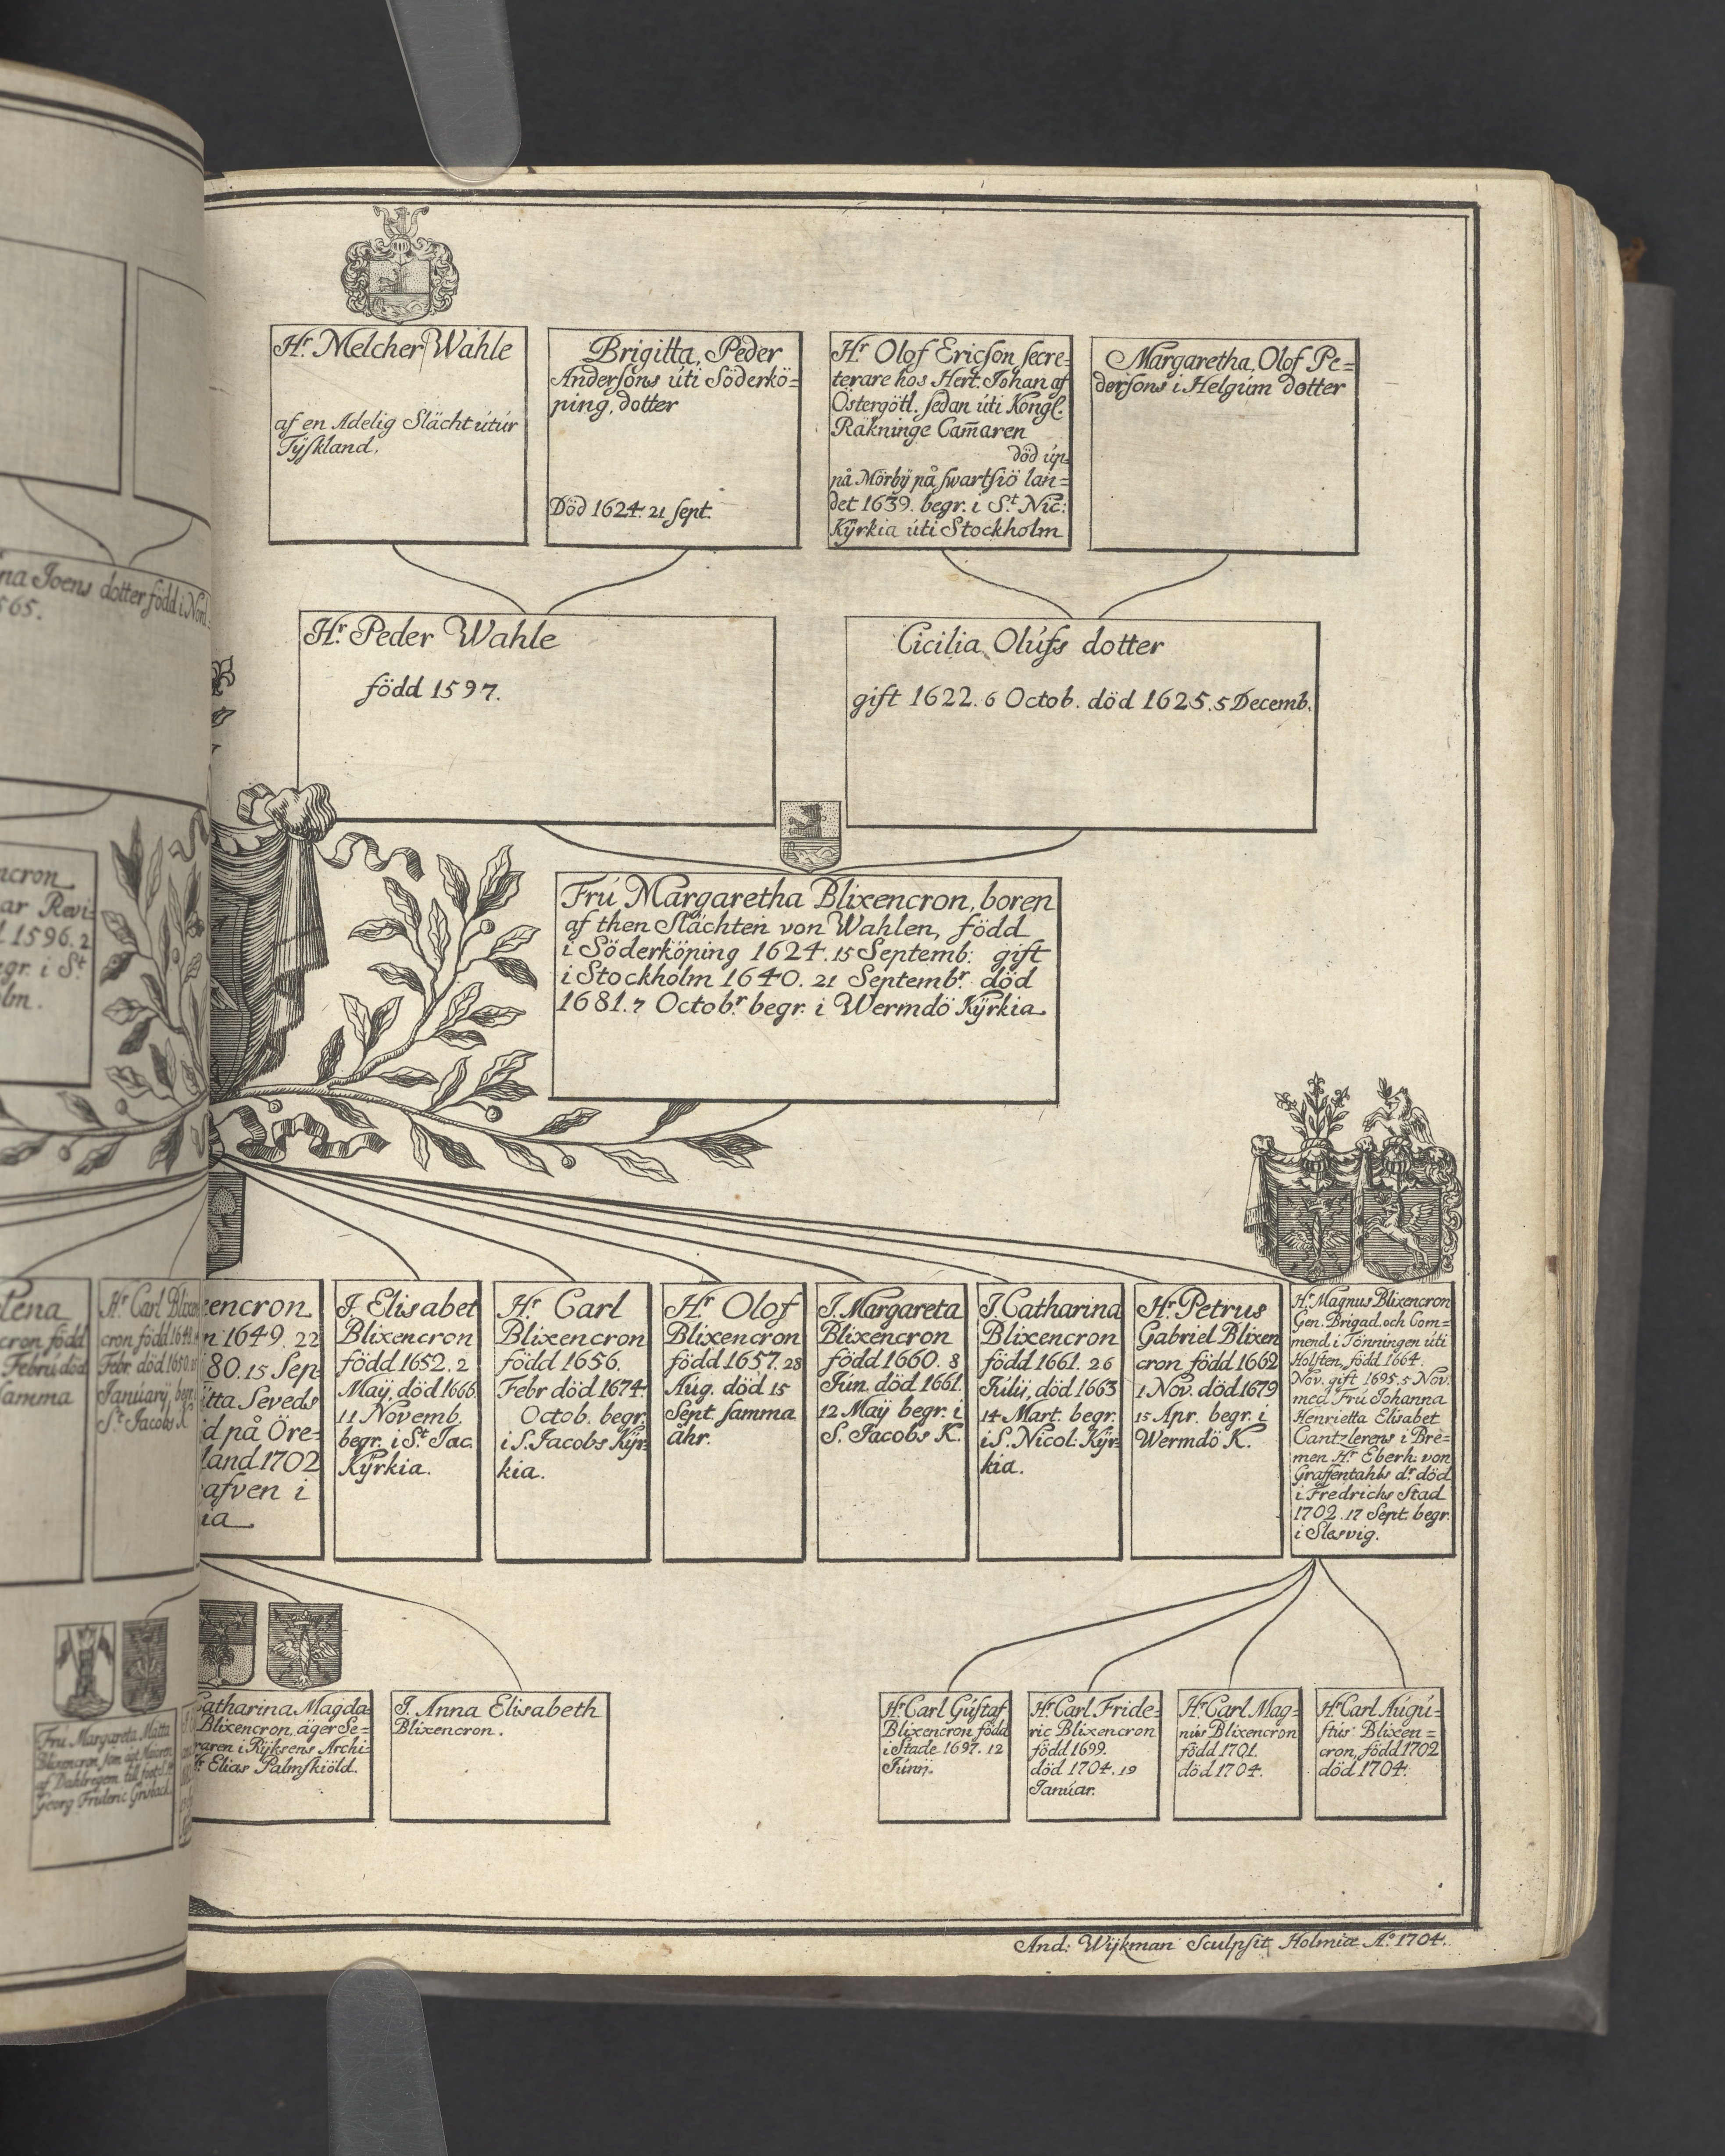 Hr. Melcher Wahle
af en Adelig Slächt útúr
Tÿskland.
Brigitta, Peder
Andersons úti Söderkö=
ping, dotter
Död 1624. 21 Sept.
Hr Olof Ericson secre-
terare hos Hert. Johan af
Östergötl. sedan úti Kongl.
Räkninge Cam̄aren
död úp
på Mörbÿ på swartsiö lan=
det 1639. begr. i St. Nic:
Kÿrkia úti Stockholm
Margaretha, Olof Pe=
dersons i Helgúm dotter
na Joens dotter född i Nord
565.
Hr. Peder Wahle
född 1597.
Cicilia Olúfs dotter
gift 1622. 6 Octob. död 1625. 5 Decemb.
ncron
ar Revi-
1596. 2
egr. i St
olm.
Frú Margaretha Blixencron, boren
af then Slächten von Wahlen, född
i Söderköping 1624. 15 Septemb: gift
i Stockholm 1640. 21 Septembr. död
1681. 7 Octobr. begr. i Wermdö Kÿrkia
lena
cron född
Febru död
samma
Hr Carl Blixen
cron, född 1648.
Febr. död 1650.
Januarÿ, begr.
St Jacobs K
encron
n 1649. 22
80. 15 Sep
itta Seveds
d på Öre-
land 1702
afven i
ia
J. Elisabet
Blixencron
född 1652. 2
Maÿ, död 1666
11 Novemb.
begr. i St. Jac.
Kÿrkia.
Hr. Carl
Blixencron
född 1656.
Febr död 1674.
Octob. begr.
i S. Jacobs Kÿr-
kia.
Hr Olof
Blixencron
född 1657. 28
Aúg. död 15
Sept. samma
åhr.
J. Margareta
Blixencron
född 1660. 8
Jún. död 1661.
12 Maÿ begr. i
S. Jacobs K.
J. Catharina
Blixencron
född 1661. 26
Júlij, död 1663
14 Mart. begr.
i S. Nicol: Kÿr-
kia.
Hr. Petrus
Gabriel Blixen
cron, född 1662
1 Nov. död 1679
15 Apr. begr. i
Wermdö K.
Hr. Magnus Blixencron
Gen. Brigad. och Com=
mend. i Tönningen úti
Holsten, född 1664.
Nov. gift 1695. 5 Nov.
med Frú Johanna
Henrietta Elisabet
Cantzlerens i Bre=
men Hr. Eberh: von
Graffentahls dr. död
i Fredrichs Stad
1702. 17 Sept. begr.
i Slesvig.
Frú Margareta Matta
Blixencron
Georg Frideric
Catharina Magda
Blixencron, äger Se=
raren i Rÿksens Archi-
r. Elias Palmskiöld.
J. Anna Elisabeth
Blixencron.
Hr. Carl Gústaf
Blixencron, född
i Stade 1697. 12
Júnij.
Hr. Carl Fride=
ric Blixencron
född 1699.
död 1704. 19
Janúar.
Hr. Carl Mag=
nús Blixencron
född 1701.
död 1704.
Hr. Carl Aúgú=
stús Blixen=
cron, född 1702
död 1704.
And: Wijkman Sculpsit Holmiæ Ao. 1704.